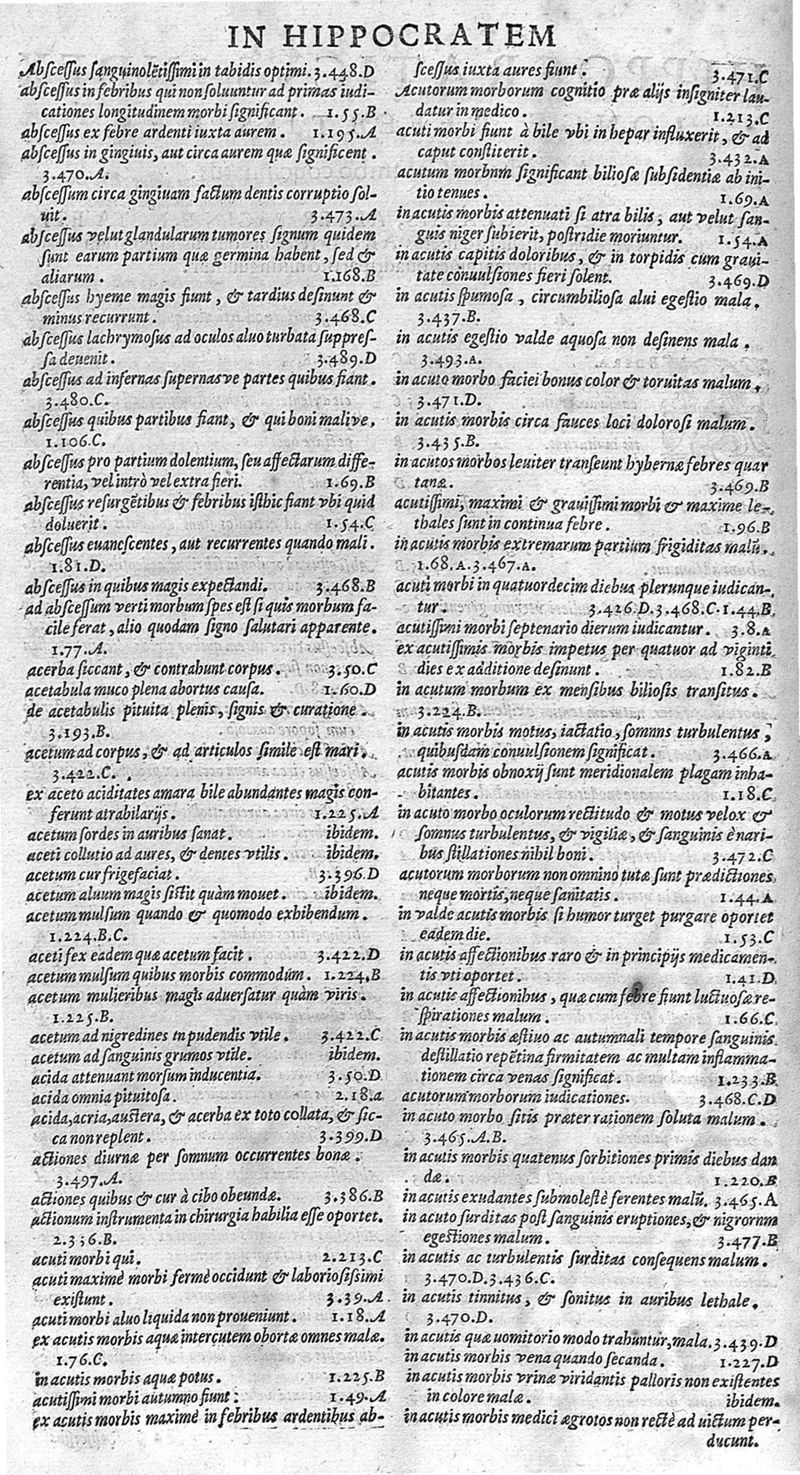 IN HIPPOCRATEM
Abſceſſus ſanguinolẽtiſſimi in tabidis optimi. 3.448.D
abſceſſus in febribus qui non ſoluuntur ad primas iudi-
cationes longitudinem morbi ſignificant. 1.55.B
abſceſſus ex febre ardenti iuxta aurem. 1.195.A
abſceſſus in gingiuis, aut circa aurem quæ ſignificent.
3.470.A.
abſceſſum circa gingiuam factum dentis corruptio ſol-
uit. 3.473.A
abſceſſus velut glandularum tumores ſignum quidem
ſunt earum partium quæ germina habent, ſed &
aliarum. 1.168.B
abſceſſus hyeme magis fiunt, & tardius deſinunt &
minus recurrunt. 3.468.C
abſceſſus lachrymoſus ad oculos aluo turbata ſuppreſ-
ſa deuenit. 3.489.D
abſceſſus ad infernas ſupernasve partes quibus fiant.
3.480.C.
abſceſſus quibus partibus fiant, & qui boni malive.
1.106.C.
abſceſſus pro partium dolentium, ſeu affectarum diffe-
rentia, vel intrò vel extra fieri. 1.69.B
abſceſſus reſurgẽtibus & febribus iſthic fiant vbi quid
doluerit. 1.54.C
abſceſſus euaneſcentes, aut recurrentes quando mali.
1.81.D.
abſceſſus in quibus magis expectandi. 3.468.B
ad abſceſſum verti morbum ſpes eſt ſi quis morbum fa-
cile ferat, alio quodam ſigno ſalutari apparente.
1.77.A.
acerba ſiccant, & contrahunt corpus. 3.50.C
acetabula muco plena abortus cauſa. 1.60.D
de acetabulis pituita plenis, ſignis & curatione.
3.193.B.
acetum ad corpus, & ad articulos ſimile eſt mari.
3.422.C.
ex aceto aciditates amara bile abundantes magis con-
ferunt atrabilarijs. 1.225.A
acetum ſordes in auribus ſanat. ibidem.
aceti collutio ad aures, & dentes vtilis. ibidem.
acetum cur frigefaciat. 3.396.D
acetum aluum magis ſiſtit quàm mouet. ibidem.
acetum mulſum quando & quomodo exhibendum.
1.224.B.C.
aceti fex eadem quæ acetum facit. 3.422.D
acetum mulſum quibus morbis commodum. 1.224.B
acetum mulieribus magis aduerſatur quàm viris.
1.225.B.
acetum ad nigredines in pudendis vtile. 3.422.C
acetum ad ſanguinis grumos vtile. ibidem.
acida attenuant morſum inducentia. 3.50.D
acida omnia pituitoſa. 2.18.a
acida, acria, auſtera, & acerba ex toto collata, & ſic-
ca non replent. 3.399.D
actiones diurnæ per ſomnum occurrentes bonæ.
3.497.A.
actiones quibus & cur à cibo obeundæ. 3.386.B
actionum inſtrumenta in chirurgia habilia eſſe oportet.
2.336.B.
acuti morbi qui. 2.213.C
acuti maximè morbi fermè occidunt & laborioſiſſimi
exiſtunt. 3.39.A
acuti morbi aluo liquida non proueniunt. 1.18.A
ex acutis morbis aquæ intercutem obortæ omnes malæ.
1.76.C.
in acutis morbis aquæ potus. 1.225.B
acutiſſimi morbi autumno fiunt. 1.49.A
ex acutis morbis maximè in febribus ardentibus ab-
ſceſſus iuxta aures fiunt. 3.471.C
Acutorum morborum cognitio præ alijs inſigniter lau-
datur in medico. 1.213.C
acuti morbi fiunt à bile vbi in hepar influxerit, & ad
caput conſtiterit. 3.432.A
acutum morbnm ſignificant bilioſæ ſubſidentiæ ab ini-
tio tenues. 1.69.A
in acutis morbis attenuati ſi atra bilis, aut velut ſan-
guis niger ſubierit, poſtridie moriuntur. 1.54.A
in acutis capitis doloribus, & in torpidis cum graui-
tate conuulſiones fieri ſolent. 3.469.D
in acutis ſpumoſa, circumbilioſa alui egeſtio mala.
3.437.B.
in acutis egeſtio valde aquoſa non deſinens mala.
3.493.A.
in acuto morbo faciei bonus color & toruitas malum.
3.471.D.
in acutis morbis circa fauces loci doloroſi malum.
3.435.B.
in acutos morbos leuiter tranſeunt hybernæ febres quar
tanæ. 3.469.B
acutiſſimi, maximi & grauiſſimi morbi & maxime le-
thales ſunt in continua febre. 1.96.B
in acutis morbis extremarum partium frigiditas malũ.
1.68.A.3.467.A.
acuti morbi in quatuordecim diebus plerunque iudican-
tur. 3.426.D.3.468.C.1.44.B.
acutiſſimi morbi ſeptenario dierum iudicantur. 3.8.A
ex acutiſſimis morbis impetus per quatuor ad viginti
dies ex additione deſinunt. 1.82.B
in acutum morbum ex menſibus bilioſis tranſitus.
3.224.B.
in acutis morbis motus, iactatio, ſomnns turbulentus,
quibuſdam conuulſionem ſignificat. 3.466.A
acutis morbis obnoxij ſunt meridionalem plagam inha-
bitantes. 1.18.C
in acuto morbo oculorum rectitudo & motus velox &
ſomnus turbulentus, & vigiliæ, & ſanguinis è nari-
bus ſtillationes nihil boni. 3.472.C
acutorum morborum non omnino tutæ ſunt prædictiones
neque mortis, neque ſanitatis. 1.44.A
in valde acutis morbis ſi humor turget purgare oportet
eadem die. 1.53.C
in acutis affectionibus raro & in principijs medicamen-
tis vti oportet. 1.41.D
in acutis affectionibus, quæ cum febre fiunt luctuoſæ re-
ſpirationes malum. 1.66.C
in acutis morbis æſtiuo ac autumnali tempore ſanguinis
deſtillatio repẽtina firmitatem ac multam inflamma-
tionem circa venas ſignificat. 1.233.B
acutorum morborum iudicationes. 3.468.C.D
in acuto morbo ſitis præter rationem ſoluta malum.
3.465.A.B.
in acutis morbis quatenus ſorbitiones primis diebus dan
dæ. 1.220.B
in acutis exudantes ſubmoleſtè ferentes malũ. 3.465.A
in acuto ſurditas poſt ſanguinis eruptiones, & nigrornm
egeſtiones malum. 3.477.B
in acutis ac turbulentis ſurditas conſequens malum.
3.470.D.3.436.C.
in acutis tinnitus, & ſonitus in auribus lethale.
3.470.D.
in acutis quæ uomitorio modo trahuntur, mala. 3.439.D
in acutis morbis vena quando ſecanda. 1.227.D
in acutis morbis vrinæ viridantis palloris non exiſtentes
in colore malæ. ibidem.
in acutis morbis medici ægrotos non rectè ad uictum per-
ducunt.